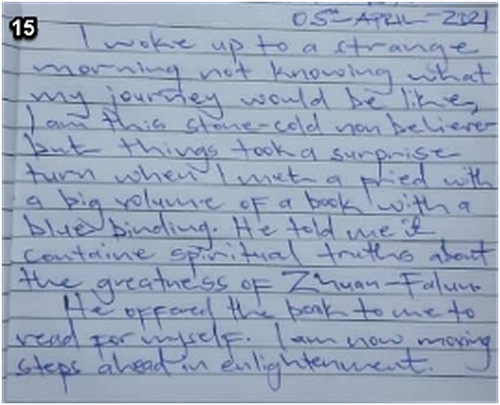 15
05th-APRIL-2021
I woke up to a strange
morning not knowing what
my journey would be like,
I am this stone-cold non believer
but things took a surprise
turn when I met a pried with
a big volume of a book with a
blue binding. He told me it
containe spiritual truths about
the greatness of Zhuan-Falun.
He offered the book to me to
read for myself. I am now moving
steps ahead in enlightenment.